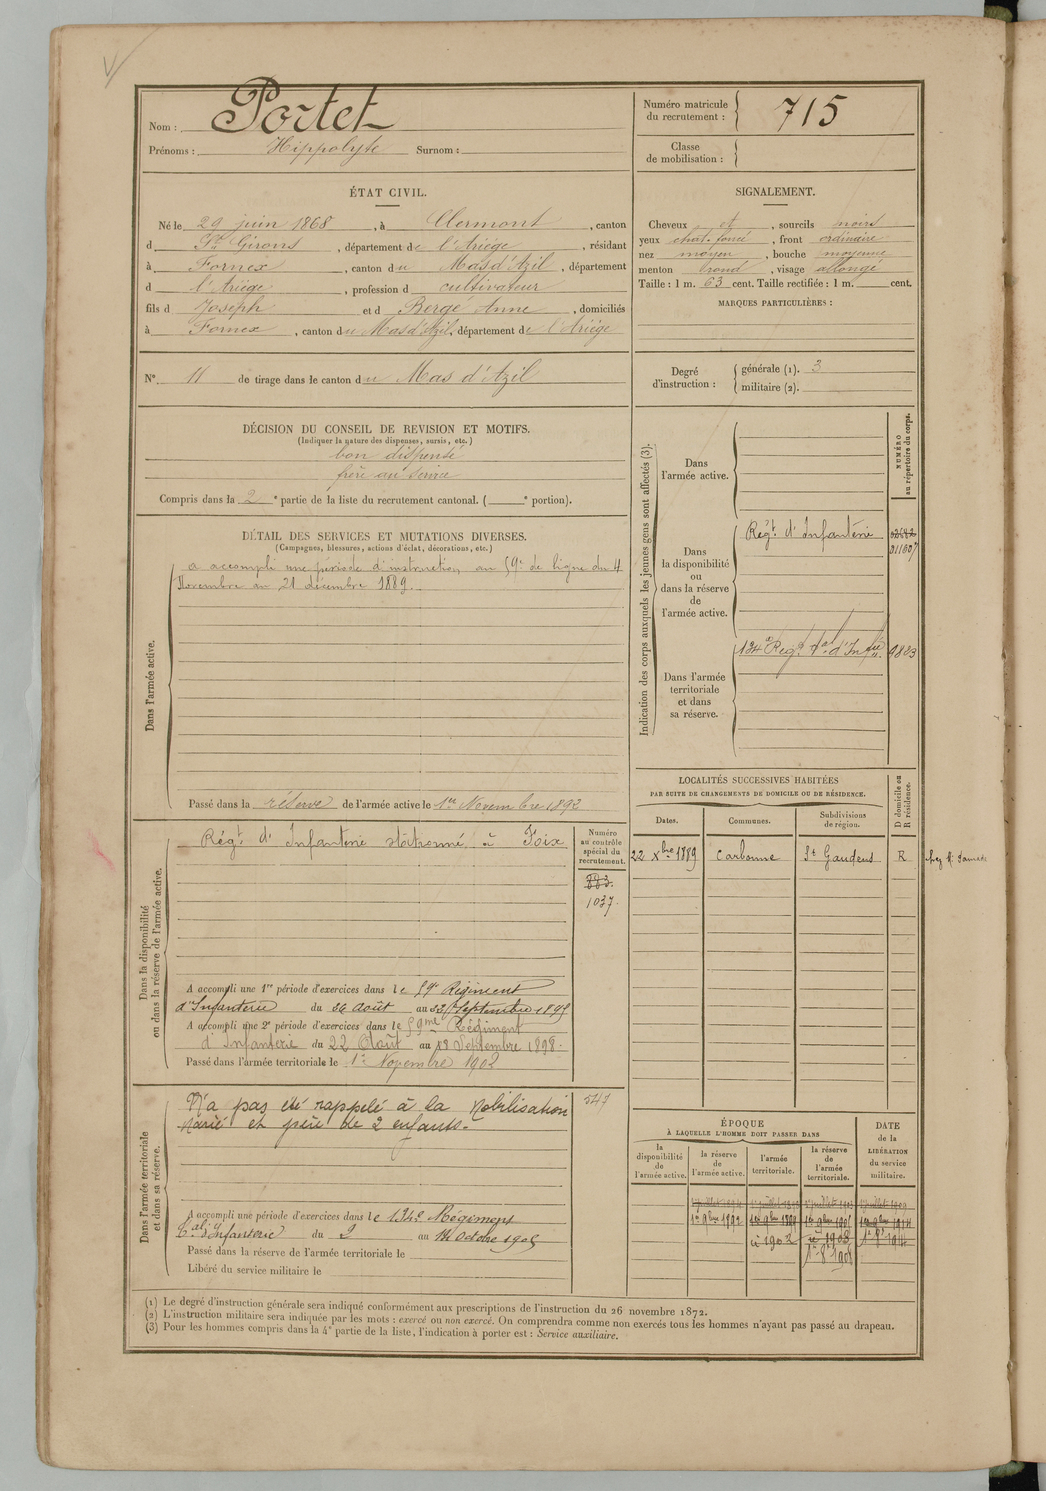 Nom : Portet
Prénoms : Hippolyte Surnom :
Numéro matricule
du recrutement : 715
Classe
de mobilisation :
ÉTAT CIVIL.
Né le 29 juin 1868, à Clermont, canton
d St Girons, département de l'Ariège, résidant
à Fornex, canton du Mas d'Azil, département
d l'Ariège, profession d cultivateur
fils d Joseph et d Bergé Anne, domiciliés
à Fornex, canton du Mas d'Azil, département de l'Ariège
SIGNALEMENT.
Cheveux et, sourcils noirs
yeux chat. foncé, front ordinaire
nez moyen, bouche moyenne
menton rond, visage allongé
Taille : 1 m. 63 cent. Taille rectifiée : 1 m. cent.
MARQUES PARTICULIÈRES :
N° 11 de tirage dans le canton du Mas d'Azil
Degré
d'instruction :
générale (1). 3
militaire (2).
DÉCISION DU CONSEIL DE REVISION ET MOTIFS.
(Indiquer la nature des dispenses, sursis, etc.)
bon dispensé
frère au service
Compris dans la 2e partie de la liste du recrutement cantonal. ( e portion).
DÉTAIL DES SERVICES ET MUTATIONS DIVERSES.
(Campagnes, blessures, actions d'éclat, décorations, etc.)
Dans l'armée active.
a accompli une période d'instruction au 59e de ligne du 4
Novembre au 21 décembre 1889.
Passé dans la réserve de l'armée active le 1er Novembre 1892
Indication des corps auxquels les jeunes gens sont affectés (3).
NUMÉRO
au répertoire du corps.
Dans
l'armée active.
Dans
la disponibilité
ou
dans la réserve
de
l'armée active.
Régt d'Infanterie
011807
Dans l'armée
territoriale
et dans
sa réserve.
134e Régt tal d'Infie 9823
LOCALITÉS SUCCESSIVES HABITÉES
PAR SUITE DE CHANGEMENTS DE DOMICILE OU DE RÉSIDENCE.
Dates. Communes. Subdivisions
de région. D domicile ou
R résidence.
22 Xbre 1889 Carbonne St Gaudens R
Dans la disponibilité
ou dans la réserve de l'armée active.
Régt d'Infanterie stationné à Foix
Numéro
au contrôle
spécial du
recrutement.
883.
1037.
A accompli une 1re période d'exercices dans le 59e Régiment
d'Infanterie du 26 Août au 22 Septembre 1895
A accompli une 2e période d'exercices dans le 59me Régiment
d'Infanterie du 22 Août au 18 Septembre 1898.
Passé dans l'armée territoriale le 1er Novembre 1902
Dans l'armée territoriale
et dans sa réserve.
N'a pas été rappelé à la Mobilisation
Marié et père de 2 enfants.
547
A accompli une période d'exercices dans le 134e Régiment
tal d'Infanterie du 2 au 14 Octobre 1905
Passé dans la réserve de l'armée territoriale le
Libéré du service militaire le
ÉPOQUE
À LAQUELLE L'HOMME DOIT PASSER DANS
la
disponibilité
de
l'armée active.
la réserve
de
l'armée active.
l'armée
territoriale.
la réserve
de
l'armée
territoriale.
DATE
de la
LIBÉRATION
du service
militaire.
1er 9bre 1892
(1) Le degré d'instruction générale sera indiqué conformément aux prescriptions de l'instruction du 26 novembre 1872.
(2) L'instruction militaire sera indiquée par les mots : exercé ou non exercé. On comprendra comme non exercés tous les hommes n'ayant pas passé au drapeau.
(3) Pour les hommes compris dans la 4e partie de la liste, l'indication à porter est : Service auxiliaire.